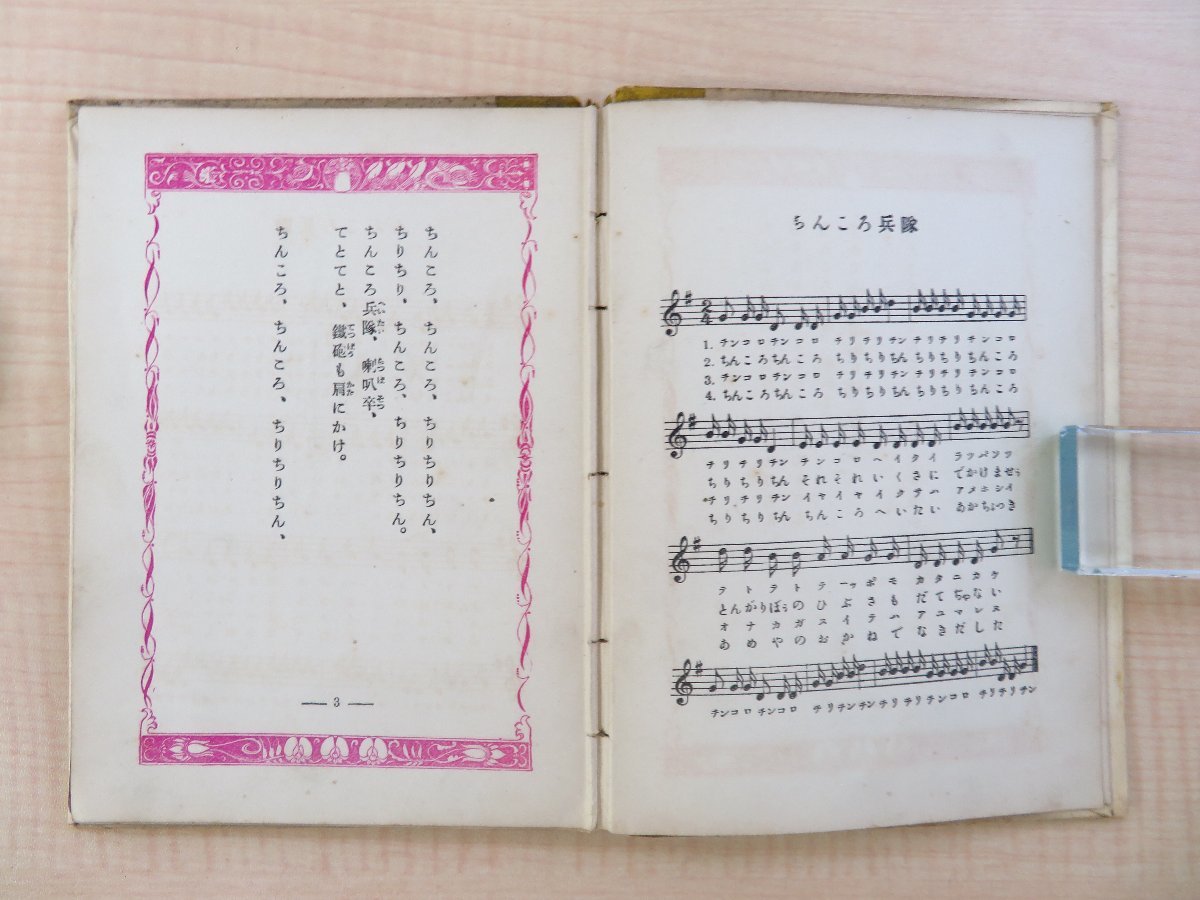 ちんころ兵隊
1. チンコロチンコロ チリチリチン チリチリチンコロ
2. ちんころちんころ ちりちりちん ちりちりちんころ
3. チンコロチンコロ チリチリチン チリチリチンコロ
4. ちんころちんころ ちりちりちん ちりちりちんころ
チリチリチン チンコロヘイタイ ラッパソツ
ちりちりちん それそれいくさに でかけませう
チリチリチン イヤイヤイクサハ アメニシイ
ちりちりちん ちんころへいたい あかちょっき
テトテトテーッポモ カタニカケ
とんがりぼうのひぶさも だてぢゃない
オナカガスイテハ アユマレヌ
あめやのおかねで なきだした
チンコロチンコロ チリチンチンチリチリチンコロ チリチリチン
ちんころ、ちんころ、ちりちりちん、
ちりちり、ちんころ、ちりちりちん。
ちんころ兵隊、喇叭卒、
てとてと、鐵砲も肩にかけ。
ちんころ、ちんころ、ちりちりちん、
— 3 —